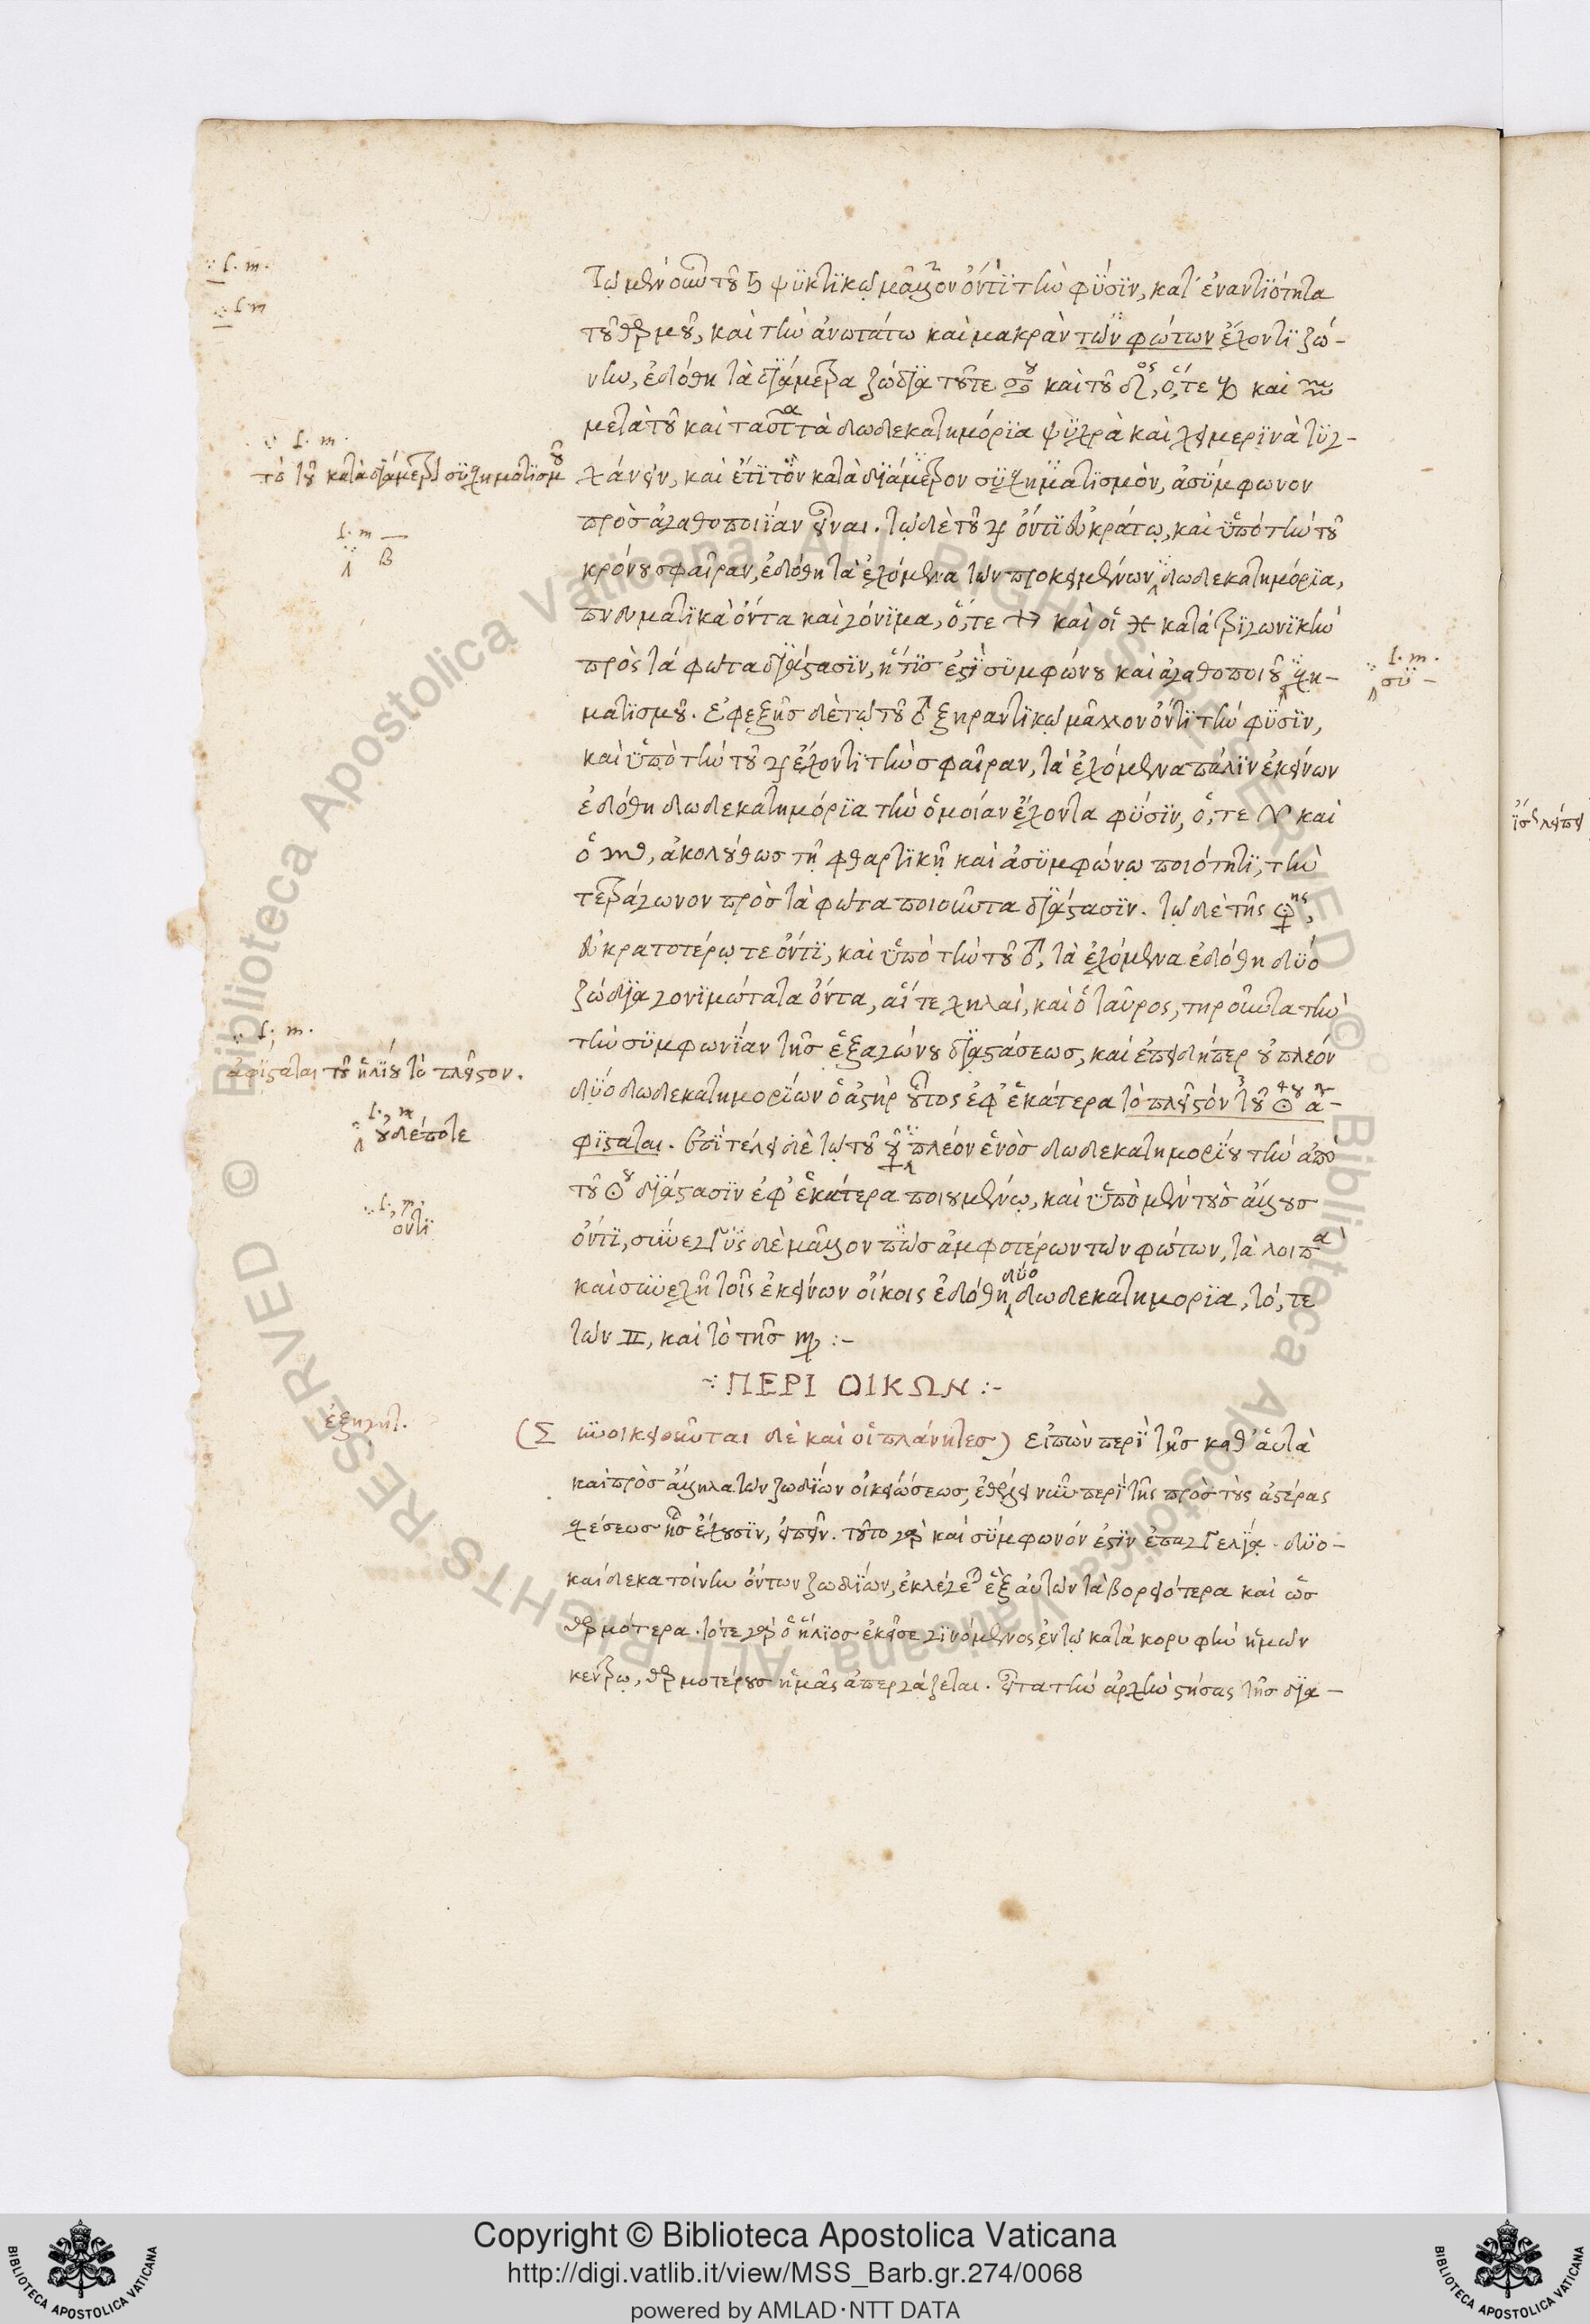 ∵ l. m.
∴ l m
Τῷ μὲν οὖν τοῦ ♄ ψυκτικῷ μᾶλλον ὄντι τὴν φύσιν, κατ' ἐναντιότητα
τοῦ θερμοῦ, καὶ τὴν ἀνωτάτω καὶ μακρὰν τῶν φώτων ἔχοντι ζώ-
νην, ἐδόθη τὰ διάμετρα ζώδια τοῦ τε ♋ου καὶ τοῦ ♌ος, ὅ, τε ♑ καὶ ♒
μετὰ τοῦ καὶ ταῦτα τὰ δωδεκατημόρια ψυχρὰ καὶ χειμερινὰ τυγ-
χάνειν, καὶ ἔτι τὸν κατὰ διάμετρον συσχηματισμὸν, ἀσύμφωνον
πρὸς ἀγαθοποιίαν εἶναι. τῷ δὲ τοῦ ♃ ὄντι εὐκράτῳ, καὶ ὑπὸ τὴν τοῦ
κρόνου σφαῖραν, ἐδόθη τὰ ἐχόμενα τῶν προκειμένων δωδεκατημόρια,
πνευματικὰ ὄντα καὶ γόνιμα, ὅ, τε ♐ καὶ οἱ ♓ κατὰ τριγωνικὴν
πρὸς τὰ φῶτα διάστασιν, ἥτις ἐστὶ συμφώνου καὶ ἀγαθοποιοῦ σχη-
ματισμοῦ. ἐφεξῆς δὲ τῷ τοῦ ♂ ξηραντικῷ μᾶλλον ὄντι τὴν φύσιν,
καὶ ὑπὸ τὴν τοῦ ♃ ἔχοντι τὴν σφαῖραν, τὰ ἐχόμενα πάλιν ἐκείνων
ἐδόθη δωδεκατημόρια τὴν ὁμοίαν ἔχοντα φύσιν, ὅ, τε ♈ καὶ
ὁ ♏, ἀκολούθως τῇ φθαρτικῇ καὶ ἀσυμφώνῳ ποιότητι, τὴν
τετράγωνον πρὸς τὰ φῶτα ποιοῦντα διάστασιν. τῷ δὲ τῆς ♀ης,
εὐκρατοτέρῳ τε ὄντι, καὶ ὑπὸ τὴν τοῦ ♂, τὰ ἐχόμενα ἐδόθη δύο
ζώδια γονιμώτατα ὄντα, αἵ τε χηλαὶ, καὶ ὁ ταῦρος, τηροῦντα τὴν
τὴν συμφωνίαν τῆς ἑξαγώνου διαστάσεως, καὶ ἐπειδήπερ οὐ πλεόν
δύο δωδεκατημορίων ὁ ἀστὴρ οὗτος ἐφ' ἑκάτερα τὸ πλεῖστόν τοῦ ☉ου ἀ-
φίσταται. ἐπὶ τέλει δὲ τῷ τοῦ ☿ πλέον ἑνὸς δωδεκατημορίου τὴν ἀπὸ
τοῦ ☉ου διάστασιν ἐφ' ἑκάτερα ποιουμένῳ, καὶ ὑπὸ μὲν τοὺς ἄλλους
ὄντι, σύνεγγυς δὲ μᾶλλον πῶς ἀμφοτέρων τῶν φώτων, τὰ λοιπὰ
καὶ συνεχῆ τοῖς ἐκείνων οἴκοις ἐδόθη δύο δωδεκατημορια, τό, τε
τῶν ♊, καὶ τὸ τῆς ♍ :-
∵ ΠΕΡΙ ΟΙΚΩΝ :-
(Συνοικειοῦνται δὲ καὶ οἱ πλάνητες) εἰπὼν περὶ τῆς καθ' αὑτὰ
καὶ πρὸς ἄλληλα τῶν ζωδίων οἰκειώσεως, ἐθέλει νῦν περὶ τῆς πρὸς τοὺς ἀστέρας
σχέσεως ἧς ἔχουσιν, εἰπεῖν. τοῦτο γὰρ καὶ σύμφωνόν ἐστιν ἐπαγγελίᾳ. δυο-
καίδεκα τοίνυν ὄντων ζωδίων, ἐκλέγεται ἐξ αὐτῶν τὰ βορειότερα καὶ ὡς
θερμότερα. τότε γὰρ ὁ ἥλιος ἐκεῖσε γινόμενος ἐν τῷ κατὰ κορυφὴν ἡμῶν
κέντρῳ, θερμοτέρους ἡμᾶς ἀπεργάζεται. εἶτα τὴν ἀρχὴν στήσας τῆς δια-
l. m.
τὸ τοῦ κατὰ διάμετρον συσχηματισμοῦ
l. m
β
l. m.
συ -
l, m.
ἀφίσταται τοῦ ἡλίου τὸ πλεῖστον.
l., m
οὐδέποτε
l, m,
ὄντι
ἐξηγητ.
Copyright © Biblioteca Apostolica Vaticana
http://digi.vatlib.it/view/MSS_Barb.gr.274/0068
powered by AMLAD·NTT DATA
BIBLIOTECA APOSTOLICA VATICANA
BIBLIOTECA APOSTOLICA VATICANA
© Biblioteca Apostolica Vaticana ALL RIGHTS RESERVED © Biblioteca Apostolica Vaticana ALL RIGHTS RESERVED